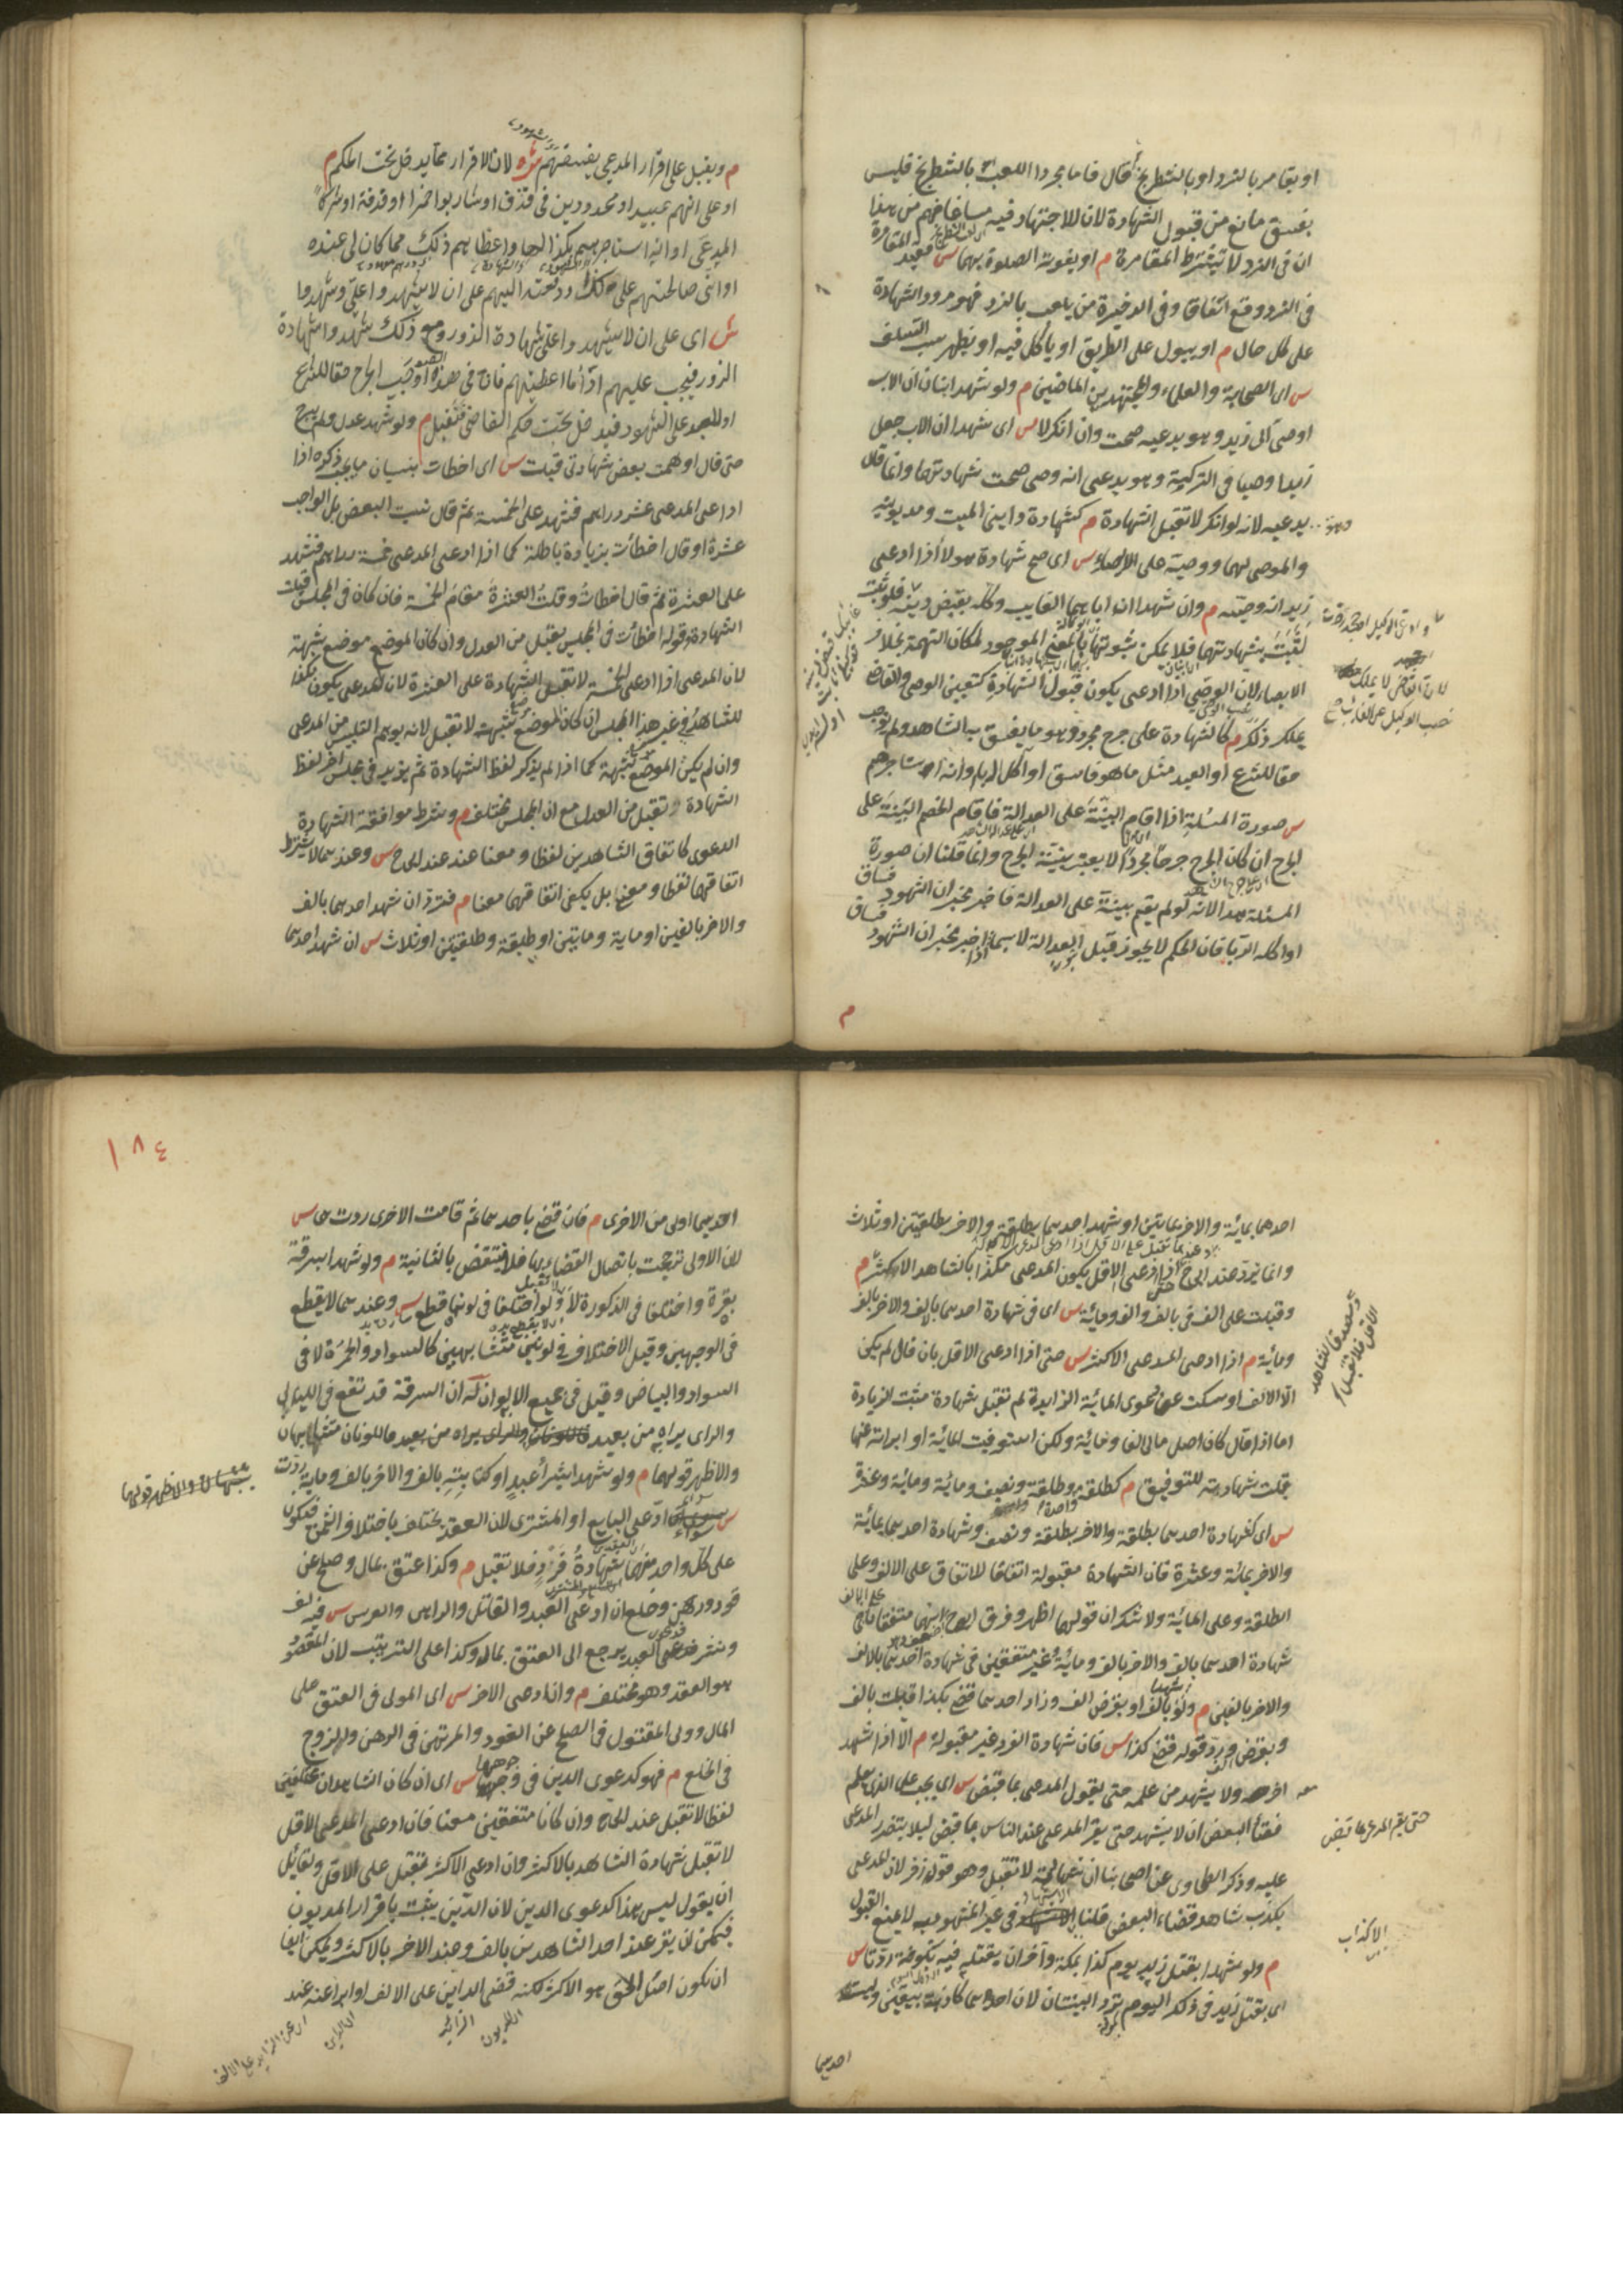 او يقامر بالنرد او بالشطرنج قال فاما مجرد اللعب بالشطرنج فليس
بفسق مانع من قبول الشهادة لان للاجتهاد فيه مساغا فهم من هذا
ان في النرد لا تشترط المقامرة م او يفوت الصلوة بهما س فقيد المقامرة
في النرد وقع اتفاقا وفي الذخيرة من يلعب بالنرد فهو مردود الشهادة
على كل حال م او يبول على الطريق او ياكل فيه او يظهر سب السلف
س اى الصحابة والعلماء والمجتهدين الماضين م ولو شهد ابنان ان الاب
اوصى الى زيد وهو يدعيه صحت وان انكر لا س اى شهدا ان الاب جعل
زيدا وصيا في التركة وهو يدعى انه وصى صحت شهادتهما وانما قال
يدعيه لانه لو انكر لا تقبل الشهادة م كشهادة دايني الميت ومديونيه
والموصى لهما ووصيه على الايصاء س اى صح شهادة هولاء اذا ادعى
زيد انه وصيه م وان شهدا ان اباهما الغايب وكله بقبض دينه فلو ثبت
لثبت بشهادتهما فلا يمكن ثبوتها بالمعنى الموجود لمكان التهمة بخلاف
الايصاء لان الوصي اذا ادعى يكون قبول الشهادة كتعيين الوصي والقاضى
يملك ذلك م كالشهادة على جرح مجرد وهو ما يفسق به الشاهد ولم يوجب
حقا للشرع او العبد مثل ما هو فاسق او آكل الربا وانه استاجرهم
س صورة المسئلة اذا اقام البينة على العدالة فاقام الخصم البينة على
الجرح ان كان الجرح جرحا مجردا لا يعتبر بينة الجرح وانما قلنا ان صورة
المسئلة هذا لانه لو لم يقم بينة على العدالة فاخبر مخبر ان الشهود فساق
او اكلة الربا فان الحكم لا يجوز قبل العدالة لا سيما اذا اخبر مخبر ان الشهود فساق
م ويقبل على اقرار المدعي بفسقهم ش لان الاقرار مما يدخل تحت الحكم م
او على انهم عبيد او محدودين في قذف او شاربوا خمرا او قذفة او شركاء
المدعى او انه استاجرهم بكذا لها واعطاهم ذلك مما كان لى عنده
او اني صالحتهم على كذا ودفعته اليهم على ان لا يشهدوا علي وشهدوا
ش اى على ان لا يشهدوا على شهادة الزور ومع ذلك شهدوا شهادة
الزور فيجب عليهم اداء ما اعطيتهم فان في هذه الصور اوجب الجرح حقا للشرع
او للعبد على الشهود فيدخل تحت حكم القاضى فتقبل م ولو شهد عدل ولم يبرح
حتى قال اوهمت بعض شهادتى قبلت س اى اخطات بنسيان ما يجب ذكره اذا
ادعى المدعى عشر دراهم فشهد على الخمسة ثم قال نسيت البعض بل الواجب
عشرة او قال اخطات بزيادة باطلة كما اذا ادعى المدعى خمسة دراهم فشهد
على العشرة ثم قال اخطات وقلت العشرة مقام الخمسة فان كان في المجلس قبلت
الشهادة وقوله اخطات في المجلس يقبل من العدل وان كان الموضع موضع شبهة
لان المدعى اذا ادعى الخمسة لا تقبل الشهادة على العشرة لان المدعى يكون مكذبا
للشاهد وفي غير هذا المجلس ان كان الموضع شبهة لا تقبل لانه يوهم التلبيس من المدعى
وان لم يكن الموضع شبهة كما اذا لم يذكر لفظ الشهادة ثم يزيد في مجلس اخر لفظ
الشهادة تقبل من العدل مع ان المجلس مختلف م وشرط موافقة الشهادة
الدعوى كاتفاق الشاهدين لفظا ومعنا عند ابى ح س وعندهما لا يشترط
اتفاقهما لفظا ومعنا بل يكفى اتفاقهما معنا م فترد ان شهد احدهما بالف
والاخر بالفين او ماية ومايتين او طلقة وطلقتين او ثلاث س ان شهد احدهما
م
احدهما بمائة والاخر بمايتين او شهد احدهما بطلقة والاخر بطلقتين او ثلاث
وانما ترد عند ابى ح اذا ادعى الاقل يكون المدعى مكذبا بالشاهد الاكثر م
وقبلت على الف في بالف والف ومائة س اى في شهادة احدهما بالف والاخر بالف
ومائة م اذا ادعى المدعى الاكثر س حتى اذا ادعى الاقل بان قال لم يكن
الا الالف او سكت عن دعوى المائة الزايدة لم تقبل شهادة مثبت الزيادة
اما اذا قال كان اصل مالى الفا ومائة ولكن استوفيت المائة او ابراته عنها
قبلت شهادته للتوفيق م كطلقة وطلقة ونصف ومائة ومائة وعشرة
س اى كشهادة احدهما بطلقة والاخر بطلقة ونصف وشهادة احدهما بمائة
والاخر بمائة وعشرة فان الشهادة مقبولة اتفاقا للاتفاق على الالف وعلى
الطلقة وعلى المائة ولا شك ان قولهما اظهر وفرق ابى ح انهما متفقان على
شهادة احدهما بالف والاخر بالف ومائة غير متفقين في شهادة احدهما بالالف
والاخر بالفين م ولو بالف او بقرض الف وزاد احدهما قضى بكذا قبلت بالف
وبقرض ورد قوله قضى كذا س فان شهادة الفرد غير مقبولة م الا اذا شهد
معه اخر ولا يشهد من علمه حتى يقول المدعى بما قبض س اى يجب على الذي علم
قضاء البعض ان لا يشهد حتى يقر المدعى عند الناس بما قبض ليلا يتضرر المدعى
عليه وذكر الطحاوى عن اصحابنا ان شهادته لا تقبل وهو قول زفر لان المدعى
يكذب شاهد قضاء البعض قلنا الاكذاب في غير المشهود به لا يمنع القبول
م ولو شهدا بقتل زيد يوم كذا بمكة وآخران بقتله فيه بكوفة ردتا س
اى بقتل زيد في ذلك اليوم ترد البينتان لان احدهما كاذبة بيقين وليست
حتى يقر المدعى بما قبض
الاكذاب
احديهما
١٨٤
احديهما اولى من الاخرى م فان قضى باحديهما ثم قامت الاخرى ردت هى س
لان الاولى ترجحت باتصال القضاء بها فلا تنتقض بالثانية م ولو شهدا بسرقة
بقرة واختلفا في الذكورة لا ولو اختلفا في لونها قطع س وعندهما لا يقطع
في الوجهين وقيل الاختلاف في لونين متشابهين كالسواد والحمرة لا في
السواد والبياض وقيل في جميع الالوان له ان السرقة قد تقع في الليالى
والراى يراه من بعيد من بعيد فاللونان متشابهان
والاظهر قولهما م ولو شهد بشراء عبد او كتابته بالف والاخر بالف وماية ردت
س سواء ادعى البايع او المشترى لان العقد يختلف باختلاف الثمن فيكون
على كل واحد منهما شهادة فرد فلا تقبل م وكذا عتق بمال وصلح عن
قود ورهن وخلع ان ادعى العبد والقاتل والراهن والعرس س فيه لف
ونشر فدعوى العبد يرجع الى العتق بمال وكذا على الترتيب لان المقصود
هو العقد وهو مختلف م وان ادعى الاخر س اى المولى في العتق على
المال وولى المقتول في الصلح عن القود والمرتهن في الرهن والزوج
في الخلع م فهو كدعوى الدين في وجوهها س اى ان كان الشاهدان مختلفين
لفظا لا تقبل عند ابى ح وان كانا متفقين معنا فان ادعى المدعى الاقل
لا تقبل شهادة الشاهد بالاكثر وان ادعى الاكثر تقبل على الاقل ولقائل
ان يقول ليس هذا كدعوى الدين لان الدين يثبت باقرار المديون
فيمكن ان يقر عند احد الشاهدين بالف وعند الاخر بالاكثر ويمكن ايضا
ان يكون اصل الحق هو الاكثر لكنه قضى الداين على الالف او ابراعنه عند